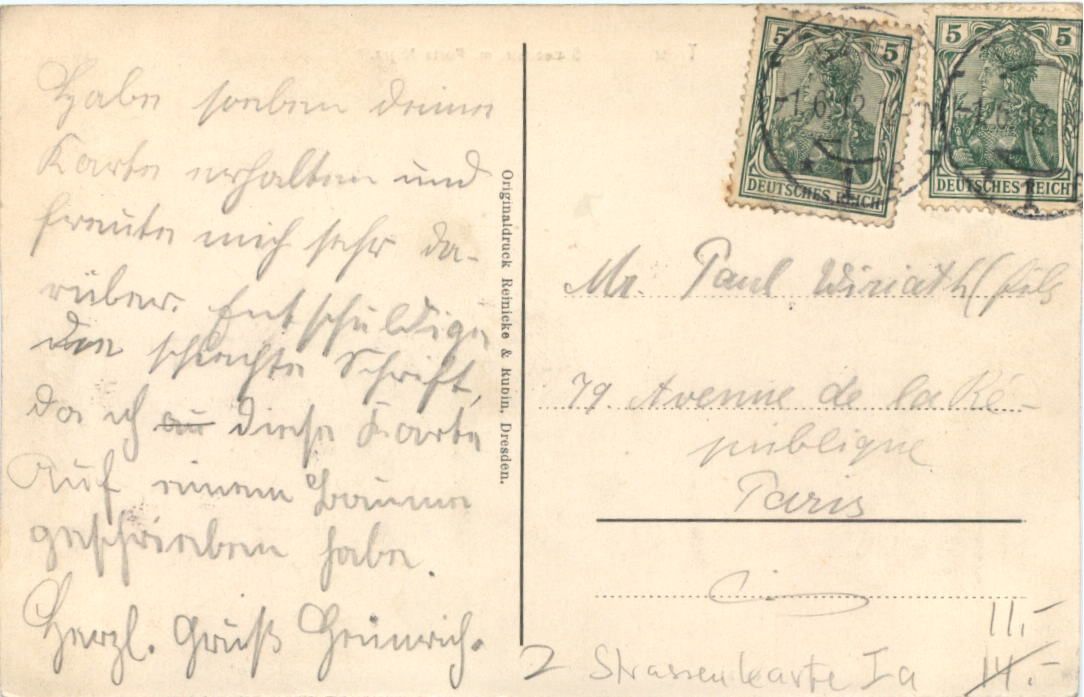 Habe soeben deine
Karte erhalten und
freute mich sehr da-
rüber. Entschuldige
die schlechte Schrift,
da ich diese Karte
Auf einem Baume
geschrieben habe.
Herzl. Gruß Heinrich.
Originaldruck Reinicke & Rubin, Dresden.
5 5
DEUTSCHES REICH
5 5
DEUTSCHES REICH
-1.6.12.12-1N
Mr. Paul Wiriath (fils
79. Avenue de la Ré-
publique
Paris
2 Strassenkarte Ia
11.-
14.-